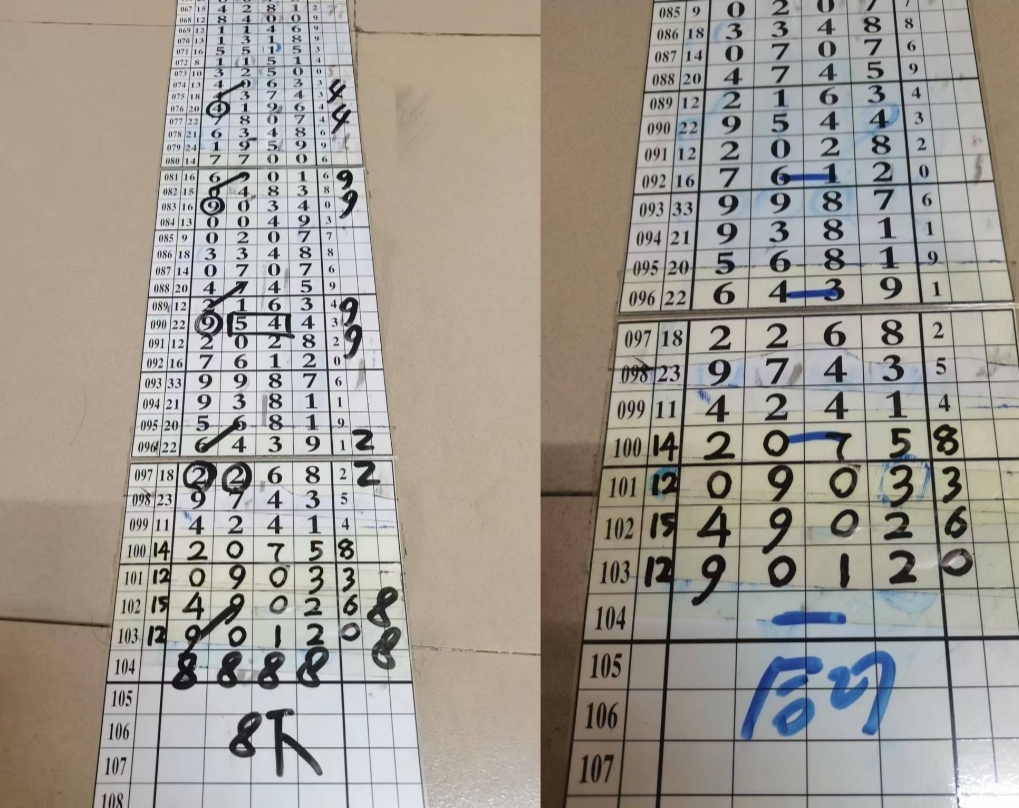 067 15 4 2 8 1 2
068 12 8 4 0 0 9
069 12 1 1 4 6 9
070 13 1 3 1 8 9
071 16 5 5 1 5 3
072 8 1 1 5 1 4
073 10 3 2 5 0 0
074 13 4 0 6 3 3 4
075 18 4 3 7 4 3
076 20 4 1 9 6 4 4
077 22 7 8 0 7 4
078 21 6 3 4 8 6
079 24 1 9 5 9 9
080 14 7 7 0 0 6
081 16 6 9 0 1 6 9
082 15 0 4 8 3 8
083 16 9 0 3 4 0 9
084 13 0 0 4 9 3
085 9 0 2 0 7 7
086 18 3 3 4 8 8
087 14 0 7 0 7 6
088 20 4 7 4 5 9
089 12 2 1 6 3 4 9
090 22 9 5 4 4 3
091 12 2 0 2 8 2 9
092 16 7 6 1 2 0
093 33 9 9 8 7 6
094 21 9 3 8 1 1
095 20 5 6 8 1 9
096 22 6 4 3 9 1 2
097 18 2 2 6 8 2 2
098 23 9 7 4 3 5
099 11 4 2 4 1 4
100 14 2 0 7 5 8
101 12 0 9 0 3 3
102 15 4 9 0 2 6 8
103 12 9 0 1 2 0 8
104 8 8 8 8
105
106 8下
107
108
085 9 0 2 0 7 7
086 18 3 3 4 8 8
087 14 0 7 0 7 6
088 20 4 7 4 5 9
089 12 2 1 6 3 4
090 22 9 5 4 4 3
091 12 2 0 2 8 2
092 16 7 6 1 2 0
093 33 9 9 8 7 6
094 21 9 3 8 1 1
095 20 5 6 8 1 9
096 22 6 4 3 9 1
097 18 2 2 6 8 2
098 23 9 7 4 3 5
099 11 4 2 4 1 4
100 14 2 0 7 5 8
101 12 0 9 0 3 3
102 15 4 9 0 2 6
103 12 9 0 1 2 0
104
105
106
107